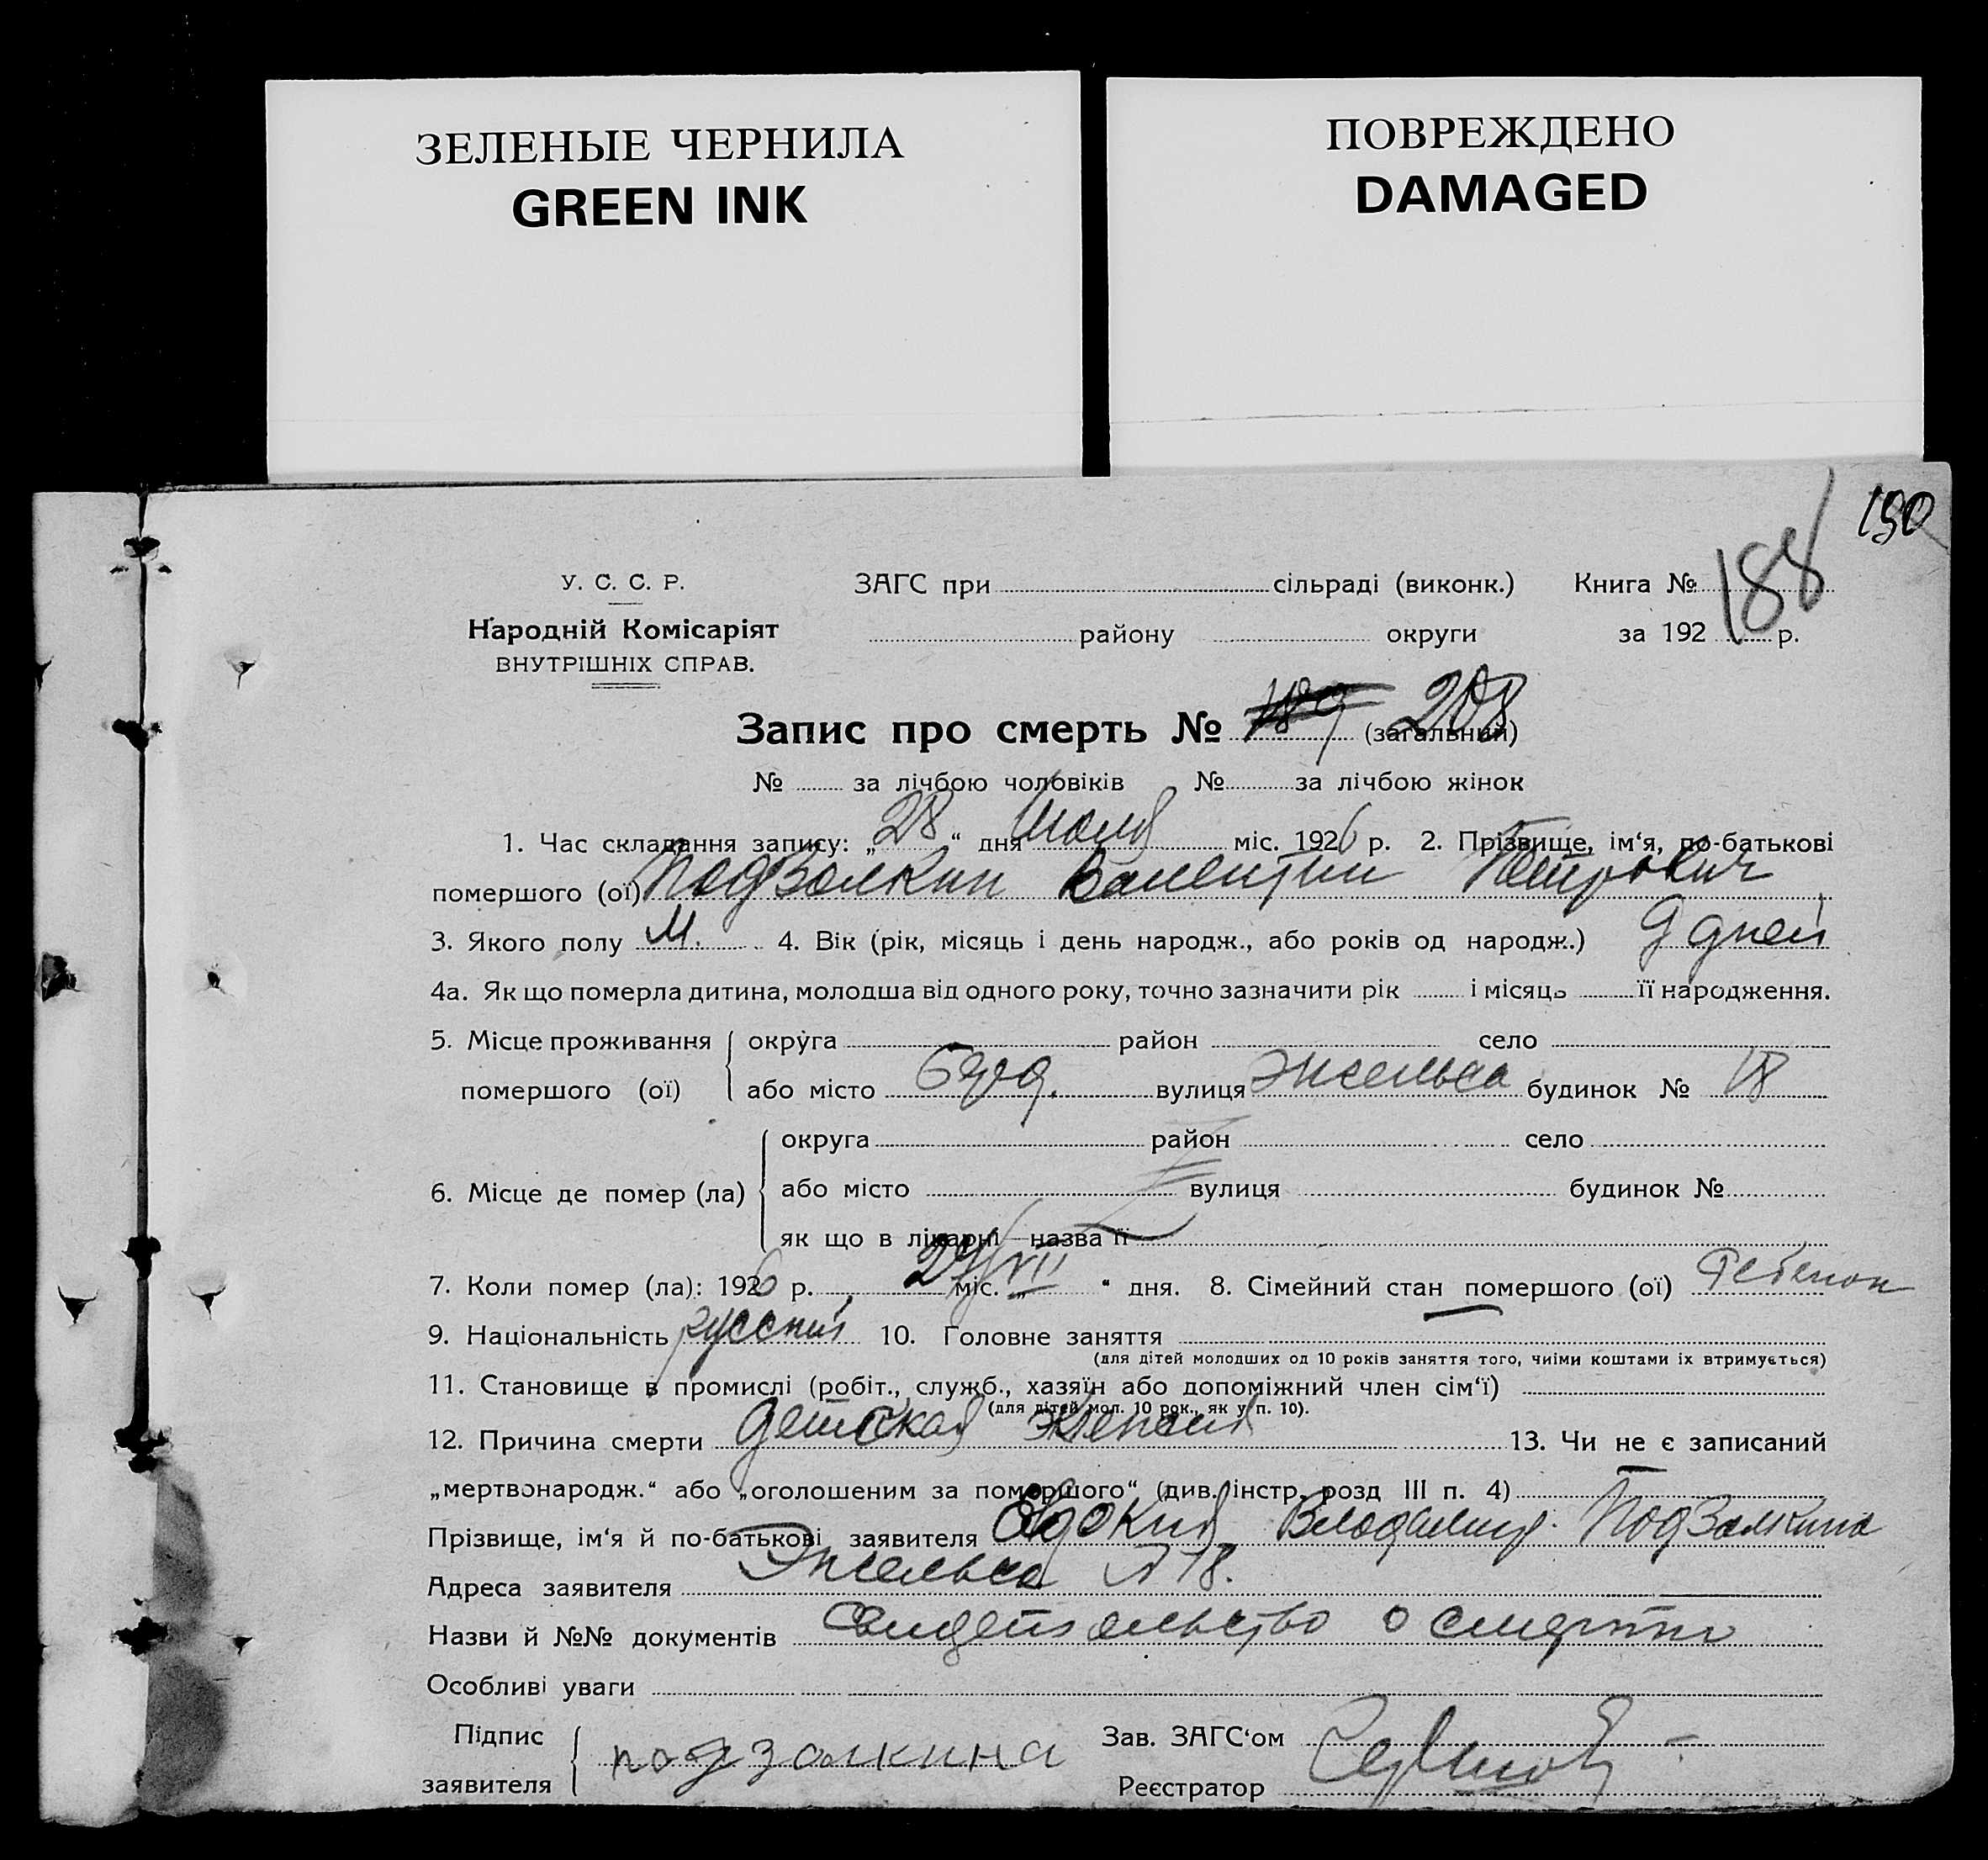 ЗЕЛЕНЫЕ ЧЕРНИЛА
GREEN INK
ПОВРЕЖДЕНО
DAMAGED
190
У. С. С. Р.
Народній Комісаріят
ВНУТРІШНІХ СПРАВ.
ЗАГС при сільраді (виконк.) Книга №
188
району округи за 192 р.
Запис про смерть № 189 208 (загальний)
№ за лічбою чоловіків № за лічбою жінок
1. Час складання запису: „28“ дня Июля міс. 1926 р. 2. Прізвище, ім‘я, по-батькові
помершого (ої) Подзолкин Валентин Петрович
3. Якого полу М. 4. Вік (рік, місяць і день народж., або років од народж.) 9 дней
4а. Як що померла дитина, молодша від одного року, точно зазначити рік і місяць її народження.
5. Місце проживання помершого (ої) округа район село
або місто вулиця Энгельса будинок № 18
6. Місце де помер (ла) округа район село
або місто вулиця будинок №
як що в лікарні назва її
7. Коли помер (ла): 1926 р. міс. VII “ дня. 8. Сімейний стан помершого (ої) Ребенок
9. Національність русский 10. Головне заняття
(для дітей молодших од 10 років заняття того, чиїми коштами їх втримується)
11. Становище в промислі (робіт., служб., хазяїн або допоміжний член сім‘ї)
(для дітей мол. 10 рок., як у п. 10).
12. Причина смерти детская 13. Чи не є записаний
„мертвонародж.“ або „оголошеним за помершого“ (див. інстр. розд III п. 4)
Прізвище, ім‘я й по-батькові заявителя Евдокия Владимир. Подзолкина
Адреса заявителя Энгельса № 18.
Назви й №№ документів Свидетельство о смерти
Особливі уваги
Підпис заявителя подзолкина
Зав. ЗАГС‘ом
Реєстратор